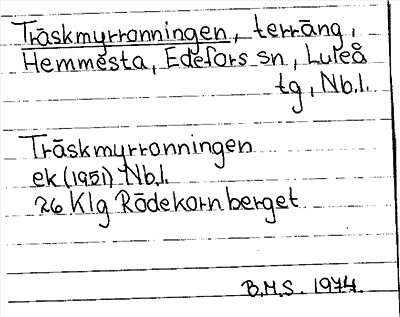 Träskmyrronningen, terräng,
Hemmesta, Edefors sn, Luleå
tg, Nb.l.
Träskmyrronningen
ek (1951) Nb.l.
26 Klg Rödekornberget
B.M.S. 1974.